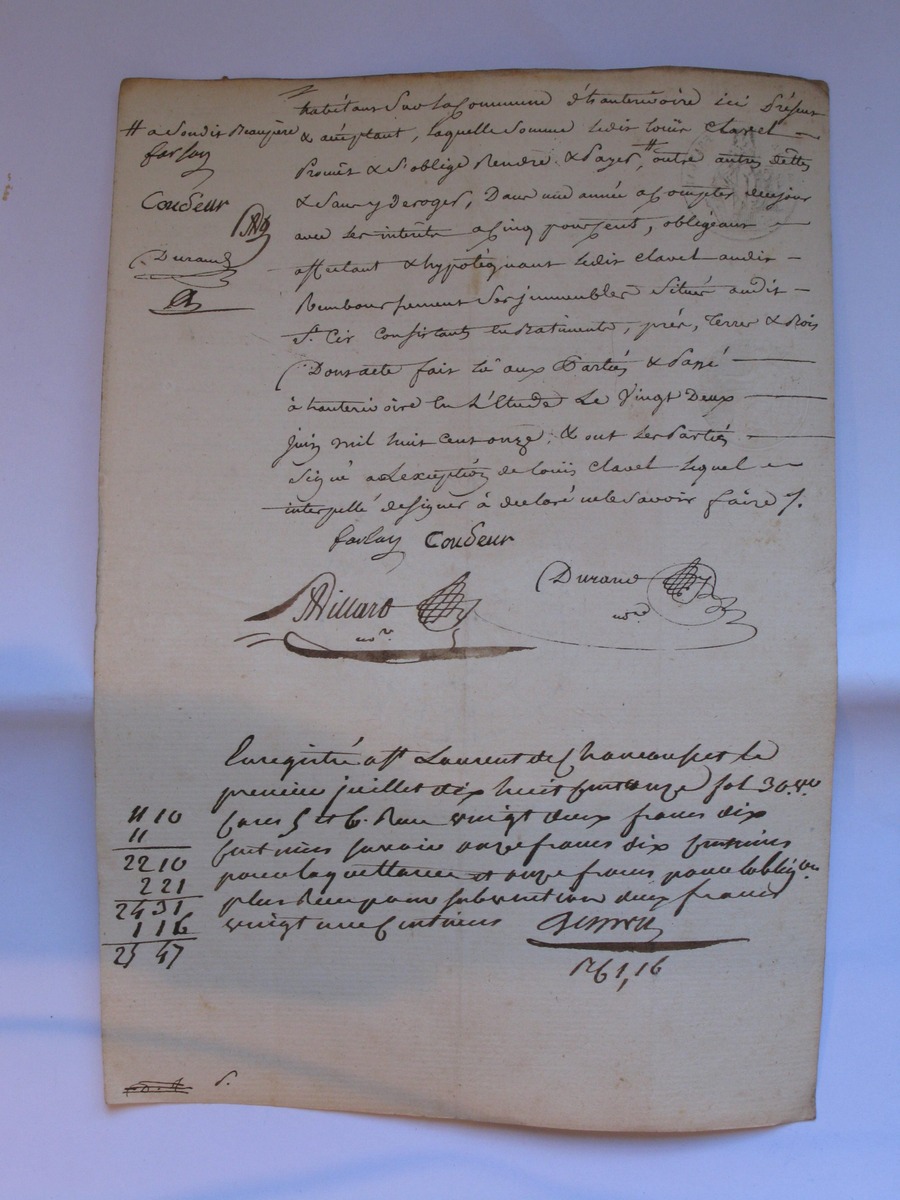 habitant Sur La Commune d'hauterivoire ici présent
& acceptant, laquelle Somme Ledit Louis Clavel
Promet & S'oblige Rendre & Payer #, outre autres dettes
& Sans y Deroger, Dans une année a Compter de ce jour
avec Les interêts a Cinq pour Cent, obligeant
affectant & hypotequant Ledit Clavel audit
Remboursement Ses immeubles Situés audit
St. Cir Consistants En Batiments, prés, Terres & Bois
Dont acte fait lû aux Parties & Passé
à hauterivoire En L'Etude Le Vingt Deux
Juin mil huit Cent onze, & ont Les Parties
Signé a L'exception de Louis Clavel Lequel
interpellé de Signer à declaré ne le Savoir faire /.
# a Sondit Beaupère
farlay
Coudeur
Durand
farlay Coudeur
Villard
nore
Durand
nore
Enregistré a St Laurent de Chamousset le
premier juillet dix huit cent onze fol 30 vo
Cases 5 et 6. Reçu vingt deux francs dix
centimes savoir onze francs dix centimes
pour la quittance et onze francs pour l'oblig.on
plus Reçu pour subvention deux francs
vingt un Centimes
11 10
11
22 10
2 21
24 31
1 16
25 47
1,16